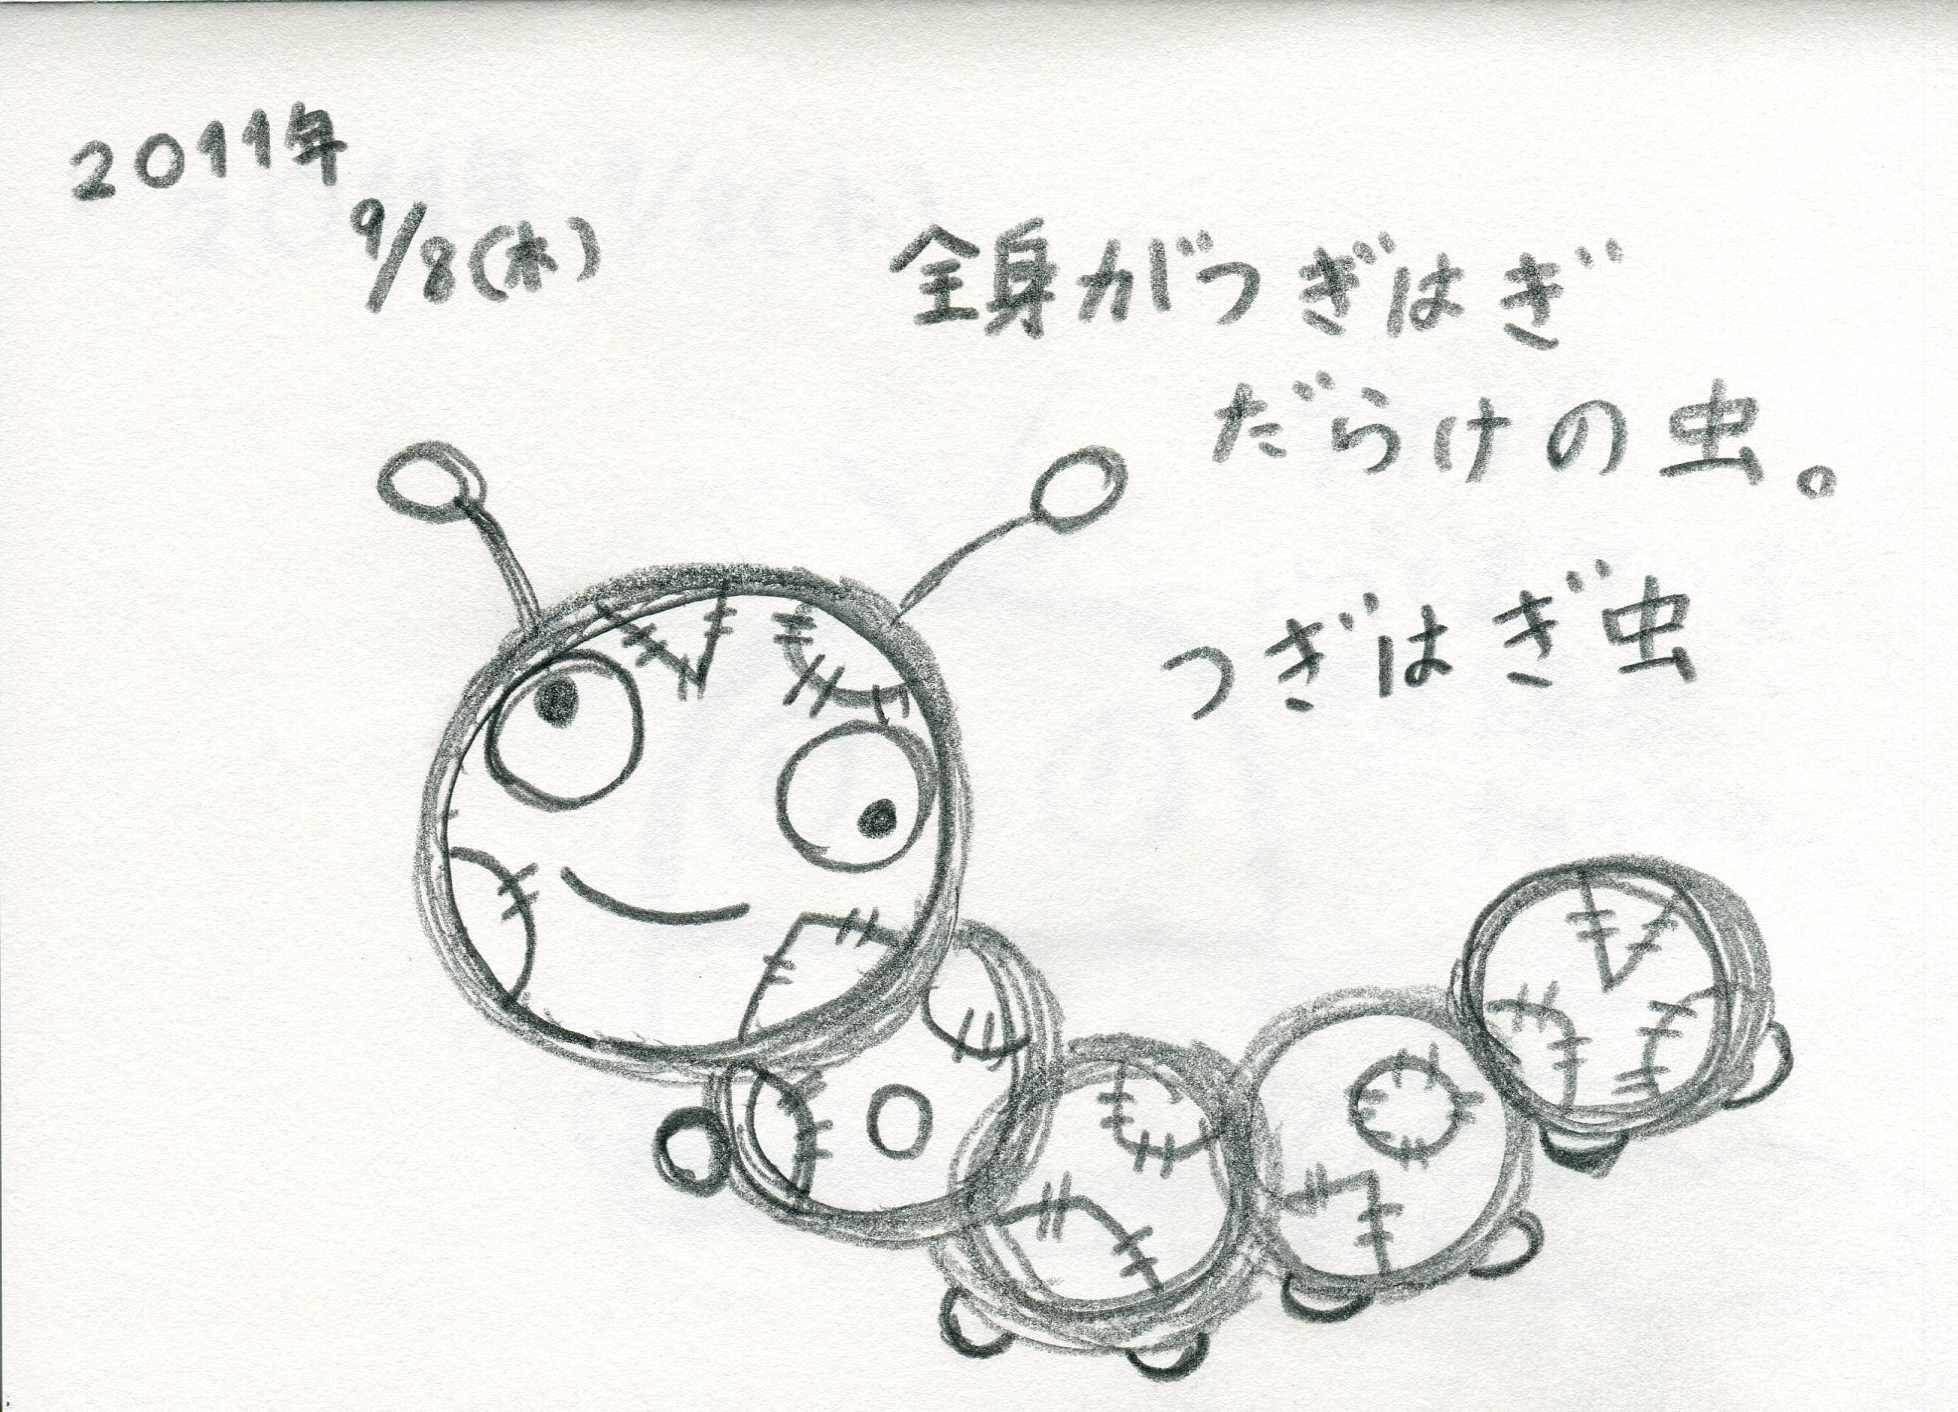 2011年
9/8(木)
全身がつぎはぎ
だらけの虫。
つぎはぎ虫